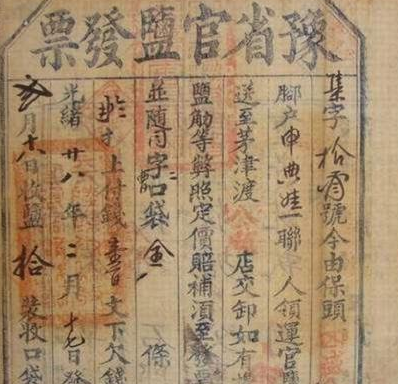 豫省官鹽發票
集字拾號今由保頭
腳户申典娃一聯人領運官鹽
送至茅津渡 店交卸如有
鹽觔等弊照定價賠補須至發票
並隨字口袋 條
上付錢壹百文下欠錢
光緒廿八年二月十七日發
月十八日收鹽拾 裝收口袋